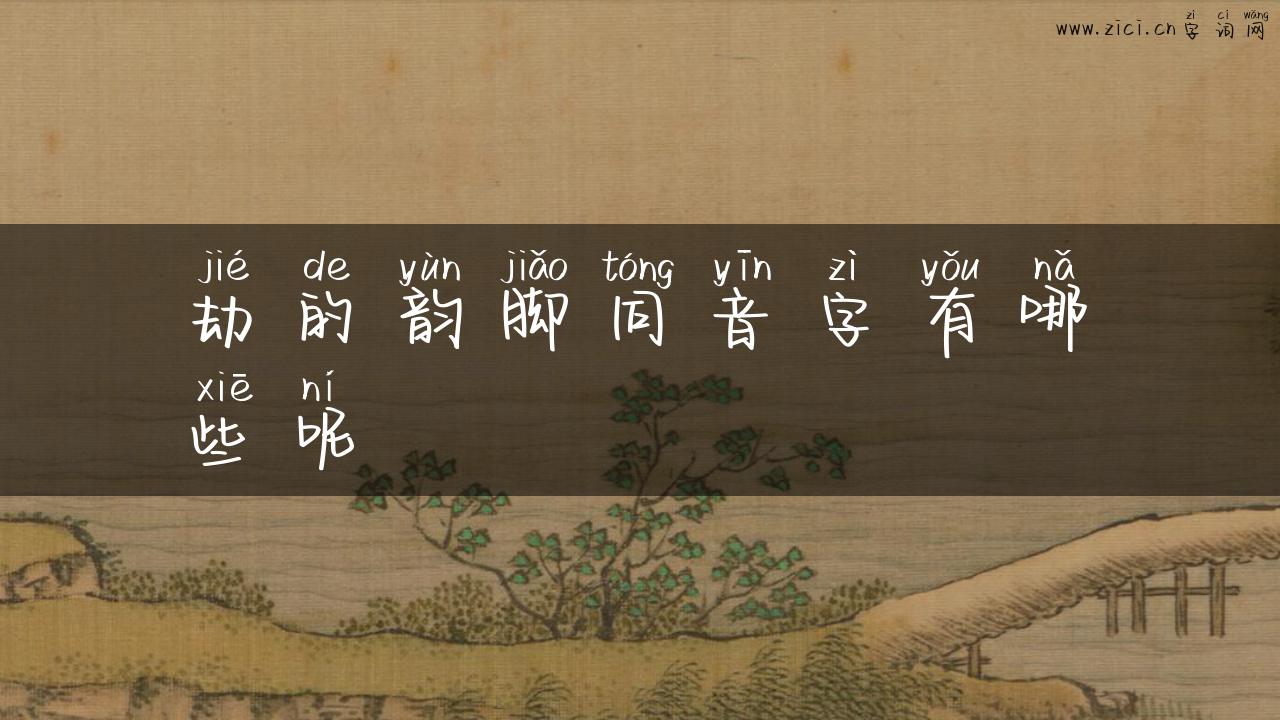 zì cí wǎng
www.zici.cn 字词网
jié de yùn jiǎo tóng yīn zì yǒu nǎ
劫的韵脚同音字有哪
xiē ní
些呢